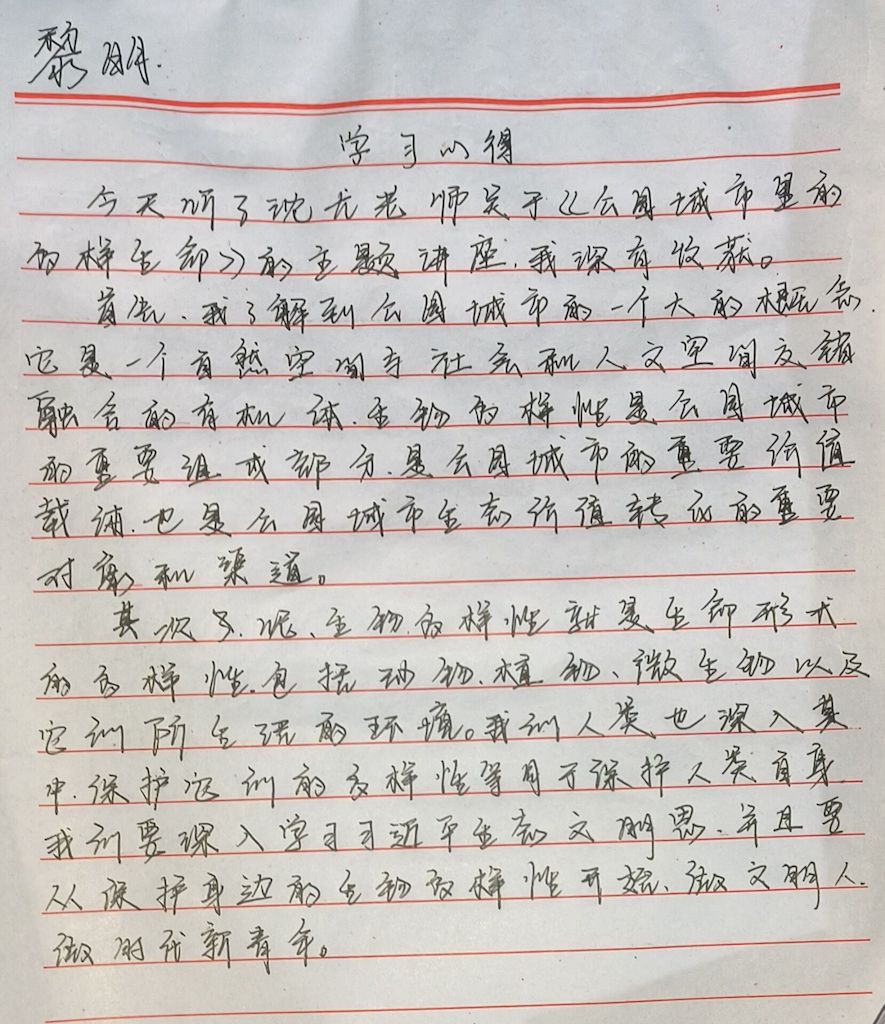 黎明.
学习心得
今天听了沈尤老师关于《公园城市里的
多样生命》的主题讲座,我深有收获。
首先、我了解到公园城市的一个大的概念
它是一个自然空间与社会和人文空间交错
融合的有机体.生物多样性是公园城市
的重要组成部分.是公园城市的重要价值
载体.也是公园城市生态价值转化的重要
对象和渠道。
其次呢、生物多样性就是生命形式
的多样性.包括动物、植物、微生物以及
它们所生活的环境。我们人类也深入其
中.保护它们的多样性等同于保护人类自身
我们要深入学习习近平生态文明思、并且要
从保护身边的生物多样性开始、做文明人.
做时代新青年。